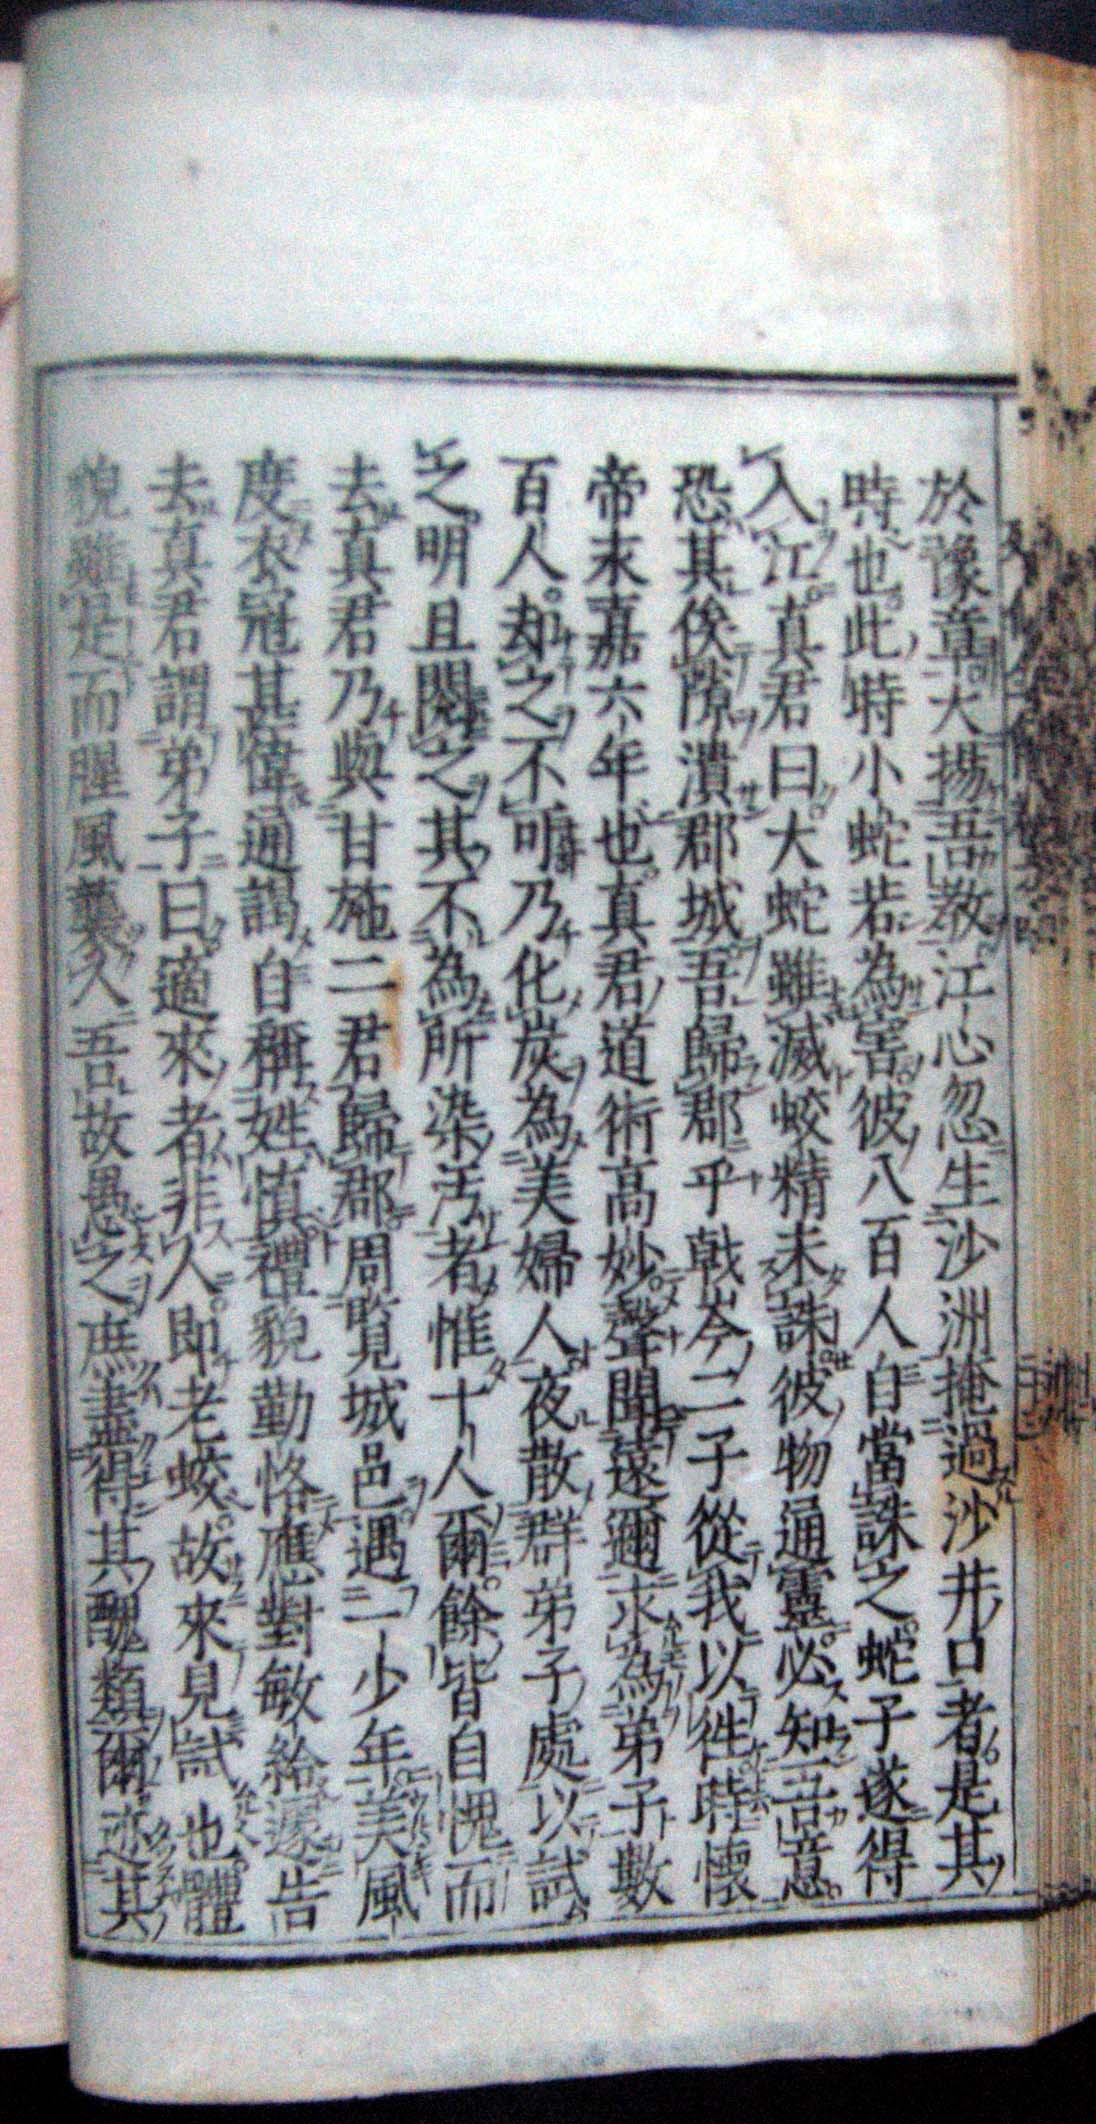 於豫章大揚吾教江心忽生沙洲掩過沙井口者是其
時也此時小蛇若為害彼八百人自當誅之蛇子遂得
入江真君曰大蛇雖滅蛟精未誅彼物通靈必知吾意
恐其俟隙潰郡城吾歸郡乎戟岑二子從我以徃時懷
帝末嘉六年也真君道術高妙聲聞遠邇求為弟子數
百人却之不可乃化炭為美婦人夜散群弟子處以試
之明旦閱之其不為所染汚者惟十人爾餘皆自愧而
去真君乃與甘施二君歸郡周覧城邑遇一少年美風
度衣冠甚偉通謁自稱姓慎禮貌勤恪應對敏給遽告
去真君謂弟子曰適來者非人即老蛟故來見試也體
貌雖是而腥風襲人吾故愚之庶盡得其醜類爾迹其